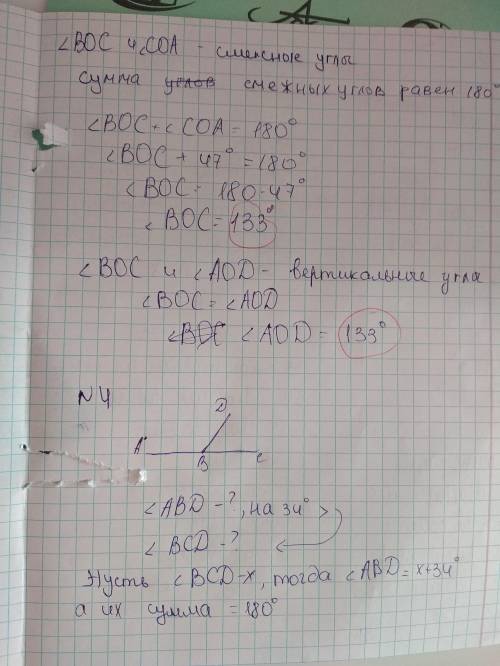 ∠BOC и ∠COA - смежные углы
сумма углов смежных углов равен 180°
∠BOC + ∠COA = 180°
∠BOC + 47° = 180°
∠BOC = 180-47°
∠BOC = 133°
∠BOC и ∠AOD - вертикальные угла
∠BOC = ∠AOD
∠BOC ∠AOD = 133°
N4
D
A
B
C
∠ABD - ?, на 34° >
∠BCD - ?
Пусть ∠BCD = x, тогда ∠ABD = x+34°
а их сумма = 180°